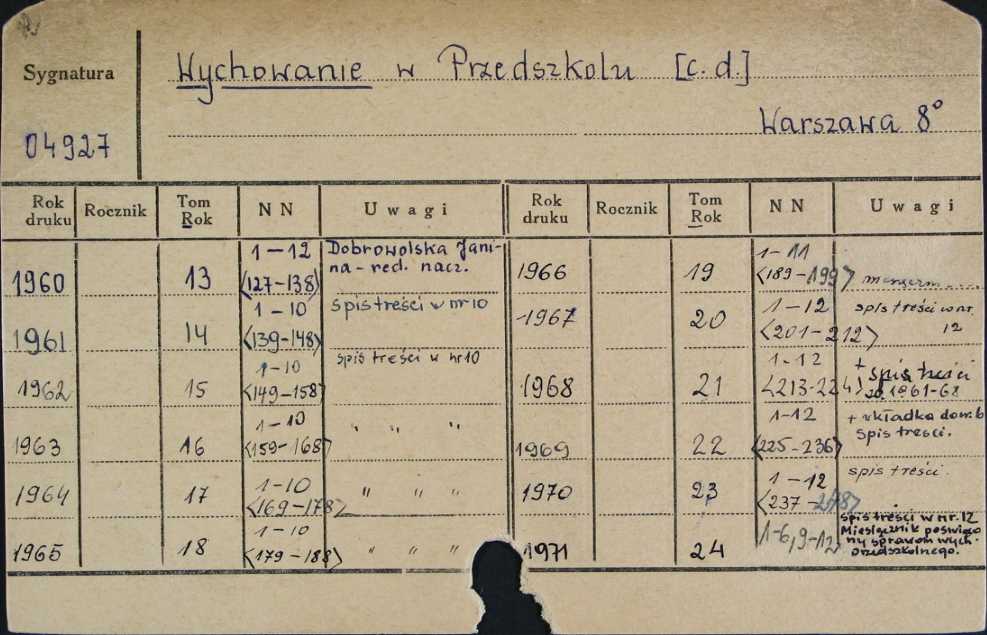 Sygnatura
Wychowanie w Przedszkolu [c.d.]
04927
Warszawa 8°
Rok druku Rocznik Tom Rok NN Uwagi Rok druku Rocznik Tom Rok NN Uwagi
1960 13 1-12 <127-138> Dobrowolska Jani-
na - red. nacz.
1961 14 1-10 <139-148> spis treści w nr 10
1962 15 1-10 <149-158> spis treści w nr 10
1963 16 1-10 <159-168> " " "
1964 17 1-10 <169-178> " " "
1965 18 1-10 <179-188> " " "
1966 19 1-11 <189-199>
1967 20 1-12 <201-212> spis treści w nr.
12
1968 21 1-12 <213-224> + spis treści
1961-68
1969 22 1-12 <225-236> + wkładka dom. 6
spis treści.
1970 23 1-12 <237-248> spis treści.
1971 24 1-6, 9-12 spis treści w nr. 12
Miesięcznik poświęco
ny sprawom wych.
przedszkolnego.